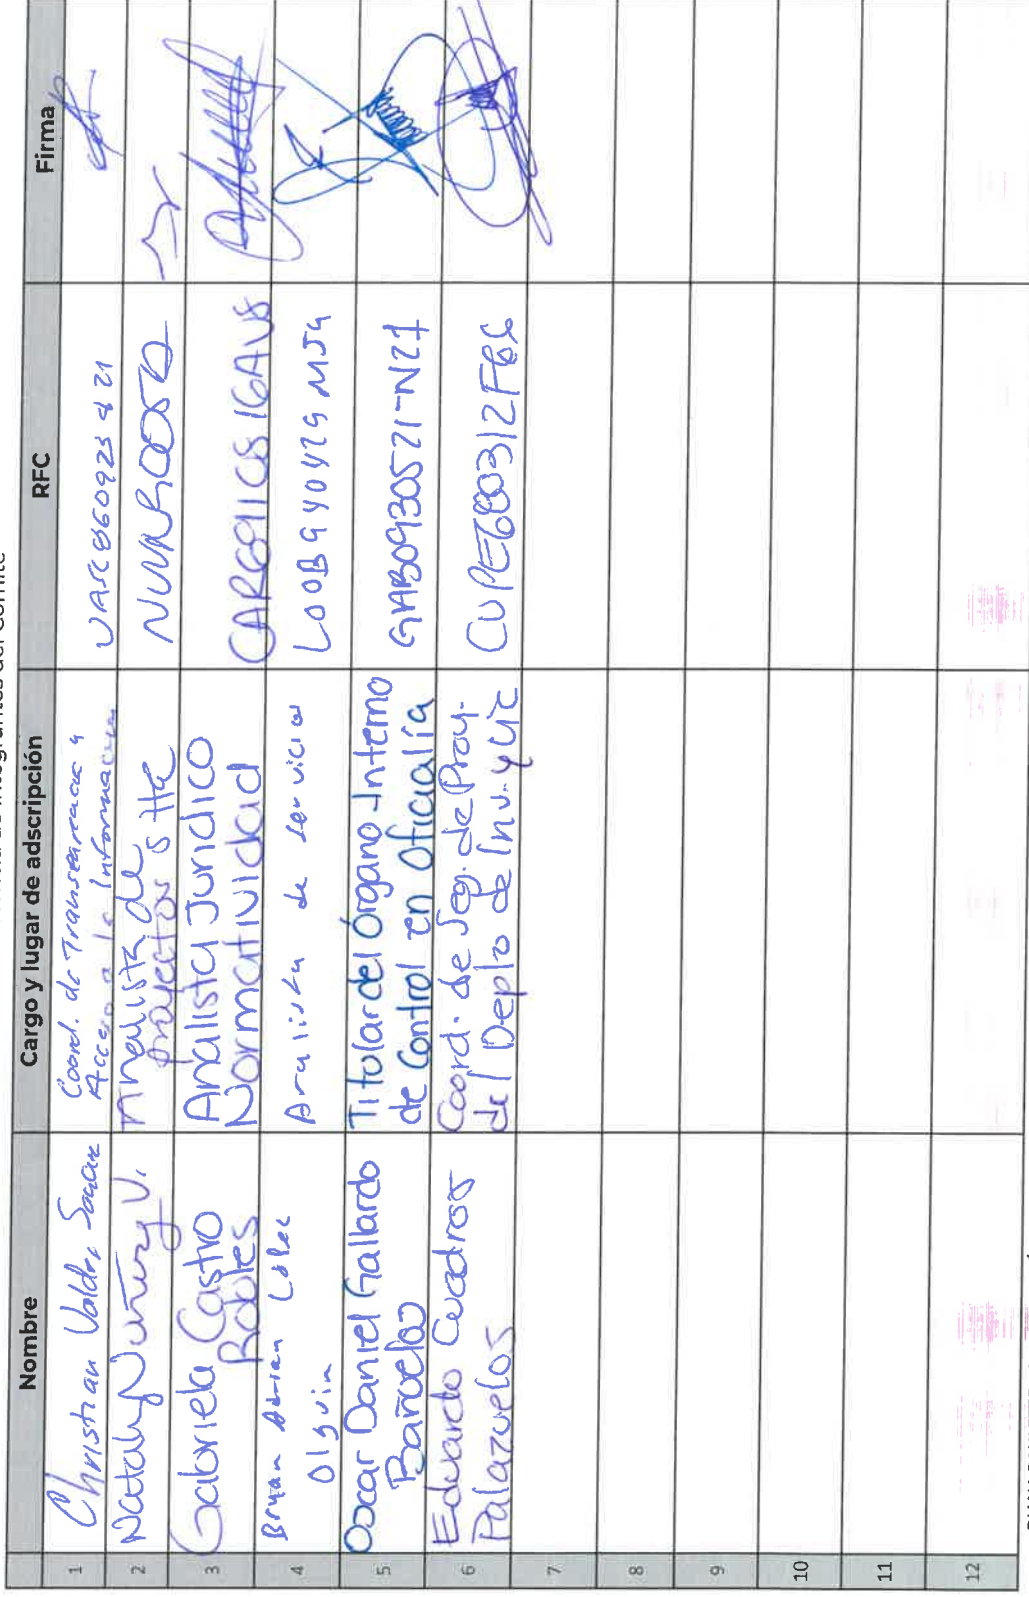 Nombre
Cargo y lugar de adscripción
RFC
Firma
1
Christian Valdez
Coord. de Transparencia y
Acceso a la Información
2
Nataly Nuñez V.
Analista de
proyectos
3
Gabriela Castro
Robles
Analista Jurídico
Normatividad
4
Bryan Adrian López
Olguin
Analista de servicios
LOOB940429MJ4
5
Oscar Daniel Gallardo
Bañuelos
Titular del Órgano Interno
de Control en Oficialía
GABO930521-N21
6
Eduardo Cuadros
Palazuelos
Coord. de Seg. de Proy.
del Depto de Inv. y Lic
7
8
9
10
11
12